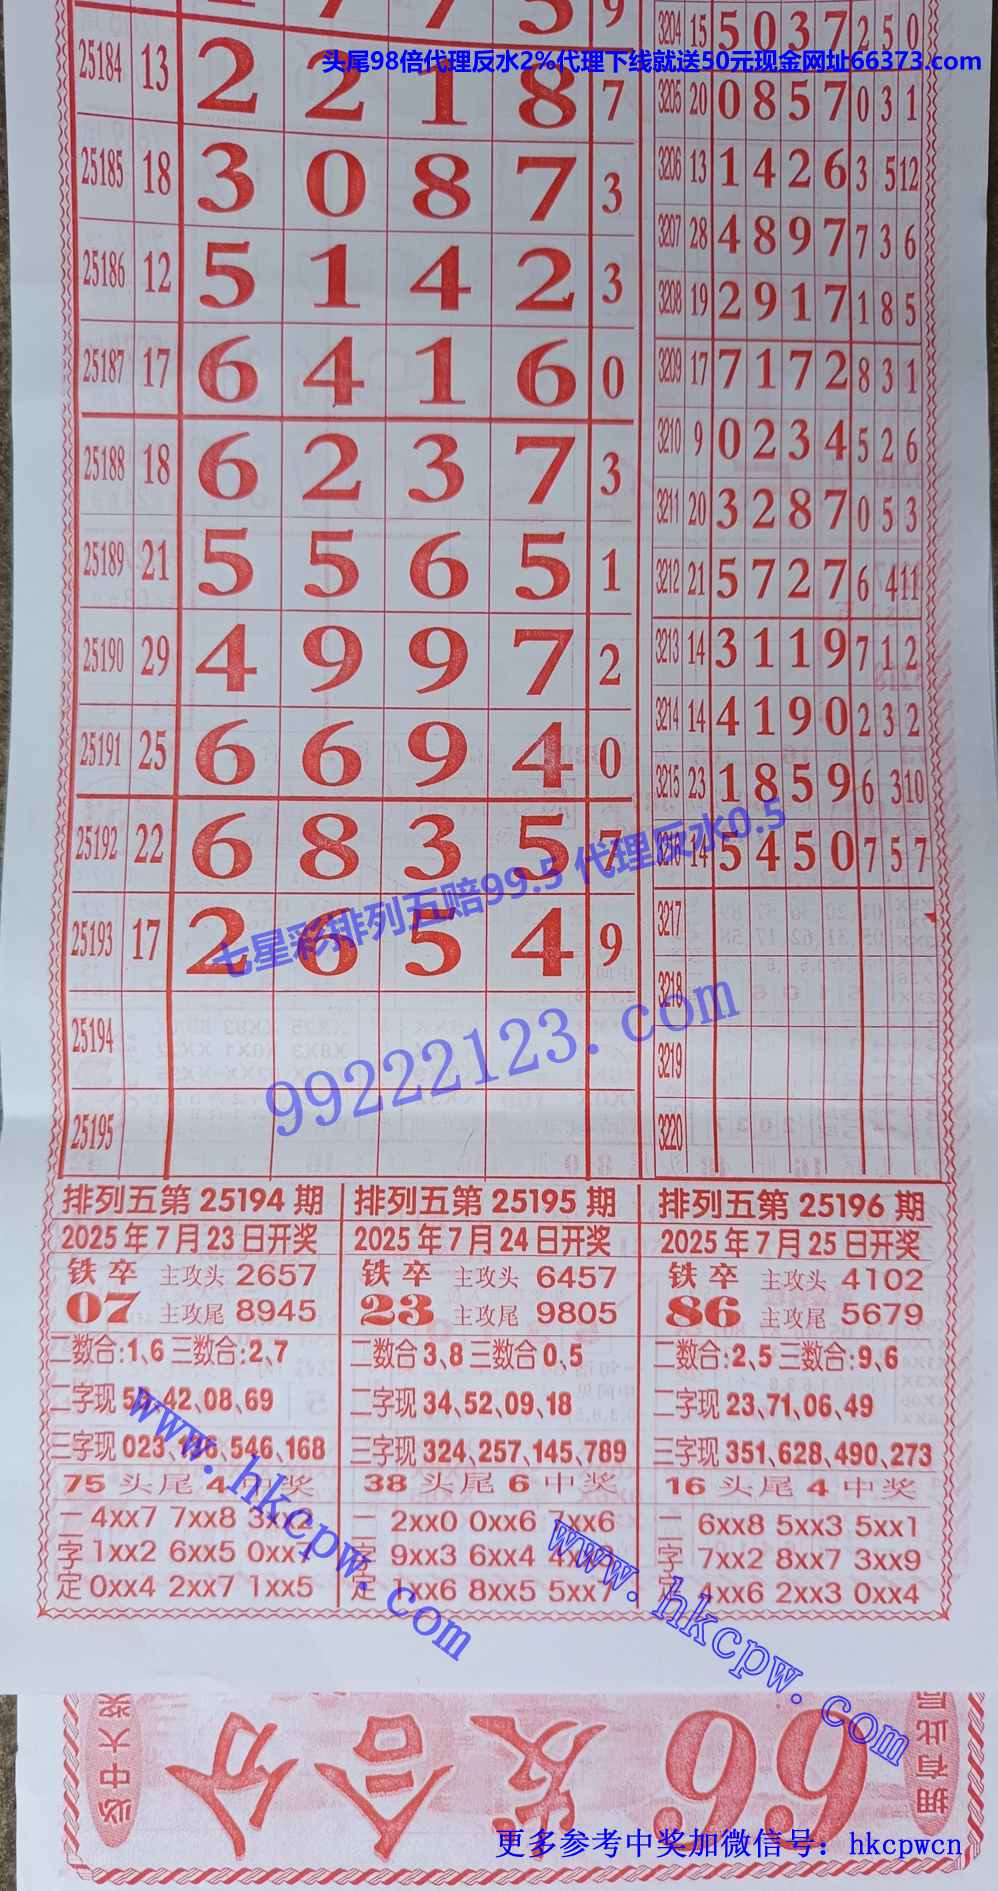 头尾98倍代理反水2%代理下线就送50元现金网址66373.com
25184 13 2 2 1 8 7
25185 18 3 0 8 7 3
25186 12 5 1 4 2 3
25187 17 6 4 1 6 0
25188 18 6 2 3 7 3
25189 21 5 5 6 5 1
25190 29 4 9 9 7 2
25191 25 6 6 9 4 0
25192 22 6 8 3 5 7
25193 17 2 6 5 4 9
25194
25195
3204 15 5 0 3 7 2 5 0
3205 20 0 8 5 7 0 3 1
3206 13 1 4 2 6 3 5 12
3207 28 4 8 9 7 7 3 6
3208 19 2 9 1 7 1 8 5
3209 17 7 1 7 2 8 3 1
3210 9 0 2 3 4 5 2 6
3211 20 3 2 8 7 0 5 3
3212 21 5 7 2 7 6 4 11
3213 14 3 1 1 9 7 1 2
3214 14 4 1 9 0 2 3 2
3215 23 1 8 5 9 6 3 10
3216 14 5 4 5 0 7 5 7
3217
3218
3219
3220
七星彩排列五赔99.5 代理反水0.5
99222123.com
排列五第 25194 期
2025 年 7 月 23 日开奖
铁卒 主攻头 2657
07 主攻尾 8945
二数合:1,6 三数合:2,7
二字现 42,08,69
三字现 023, 546,168
75 头尾 4 中奖
二字定
4xx7 7xx8
1xx2 6xx5
0xx4 2xx7 1xx5
排列五第 25195 期
2025 年 7 月 24 日开奖
铁卒 主攻头 6457
23 主攻尾 9805
二数合 3,8 三数合 0,5
二字现 34,52,09,18
三字现 324,257,145,789
38 头尾 6 中奖
二字定
2xx0 0xx6 7xx6
9xx3 6xx4
1xx6 8xx5 5xx7
排列五第 25196 期
2025 年 7 月 25 日开奖
铁卒 主攻头 4102
86 主攻尾 5679
二数合:2,5 三数合:9,6
二字现 23,71,06,49
三字现 351,628,490,273
16 头尾 4 中奖
二字定
6xx8 5xx3 5xx1
7xx2 8xx7 3xx9
4xx6 2xx3 0xx4
www.hkcpw.com
www.hkcpw.com
必中大奖
拥有此
66
更多参考中奖加微信号：hkcpwcn